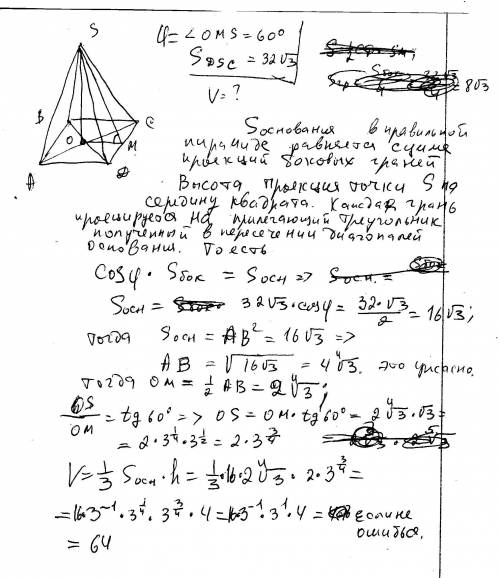 S
B
C
O
M
A
D
φ = ∠OMS = 60°
S DSC = 32√3
V = ?
= 8√3
Sоснования в правильной
пирамиде равняется сумме
проекций боковых граней
Высота проекция точки S на
середину квадрата. Каждая грань
проецируется на прилегающий треугольник
полученный в пересечении диагоналей
основания. То есть
cosφ · Sбок = Sосн =>
Sосн = 32√3 · cosφ = 32·√3/2 = 16√3;
тогда Sосн = AB² = 16√3 =>
AB = √16√3 = 4∜3. это ужасно.
тогда OM = ½ AB = 2∜3;
OS/OM = tg 60° => OS = OM · tg 60° = 2∜3 · √3 =
= 2·3^¼·3^½ = 2·3^¾
V = ⅓ Sосн · h = ⅓·16·2∜3 · 2·3^¾ =
= 16·3⁻¹·3^¼·3^¾·4 = 16·3⁻¹·3¹·4 = если не
ошибься.
= 64